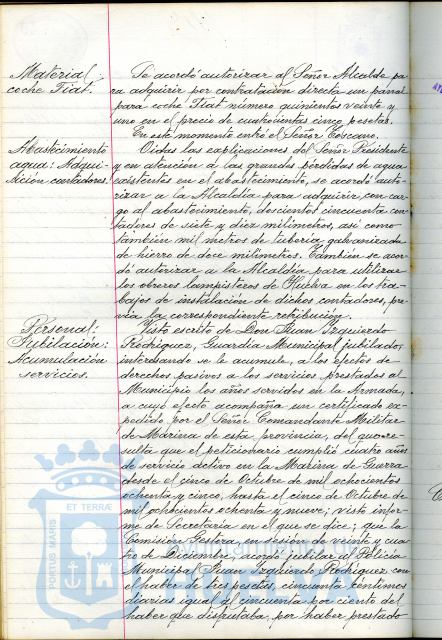 Material
coche Fiat.
Se acordó autorizar al Señor Alcalde pa
ra adquirir por contratación directa un panal
para coche Fiat número quinientos veinte y
uno en el precio de cuatrocientas cinco pesetas.
En este momento entró el Señor Toscano.
Abastecimiento
agua: Adqui-
sición contadores.
Oidas las explicaciones del Señor Presidente
y en atención a las grandes pérdidas de agua
existentes en el abastecimiento, se acordó auto-
rizar a la Alcaldía para adquirir, con car-
go al abastecimiento, doscientos cincuenta con
tadores de siete y diez milímetros, así como
también mil metros de tubería galvanizada
de hierro de doce milímetros. También se acor
dó autorizar a la Alcaldía para utilizar
los obreros lampisteros de Huelva en los tra-
bajos de instalación de dichos contadores, pre-
via la correspondiente retribución.
Personal:
Jubilación:
Acumulación
servicios.
Visto escrito de Don Juan Izquierdo
Rodríguez, Guardia Municipal jubilado,
interesando se le acumule, a los efectos de
derechos pasivos a los servicios prestados al
Municipio los años servidos en la Armada,
a cuyo efecto acompaña un certificado ex-
pedido por el Señor Comandante Militar
de Marina de esta provincia, del que re-
sulta que el peticionario cumplió cuatro años
de servicio activo en la Marina de Guerra
desde el cinco de Octubre de mil ochocientos
ochenta y cinco, hasta el cinco de Octubre de
mil ochocientos ochenta y nueve; visto infor-
me de Secretaría en el que se dice; que la
Comisión Gestora, en sesión de veinte y cua
tro de Diciembre, acordó jubilar al Policía
Municipal Juan Izquierdo Rodríguez con
el haber de tres pesetas, cincuenta céntimos
diarias igual al cincuenta por ciento del
haber que disfrutaba, por haber prestado
PORTUS MARIS
ET TERRÆ